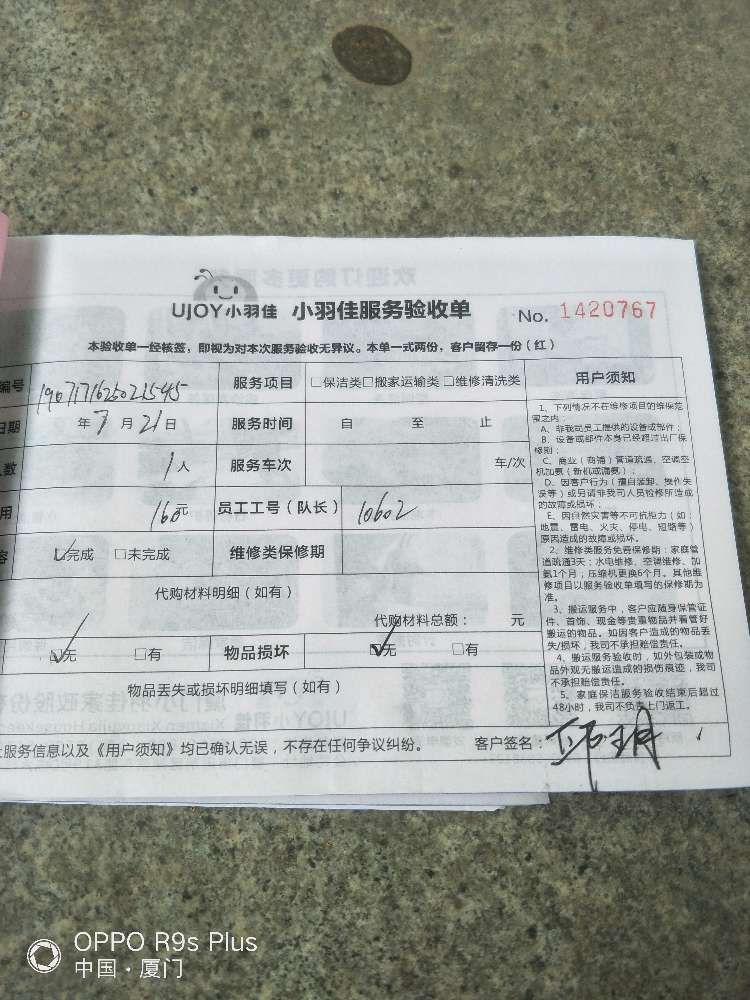 UJOY小羽佳 小羽佳服务验收单 No. 1420767
本验收单一经核签，即视为对本次服务验收无异议。本单一式两份，客户留存一份（红）
编号 190717162502 服务项目 □保洁类□搬家运输类□维修清洗类
日期 年7月21日 服务时间 自 至 止
人数 1人 服务车次 车/次
用 160元 员工工号（队长） 10602
容 ☑完成 □未完成 维修类保修期
代购材料明细（如有）
代购材料总额： 元
☑无 □有 物品损坏 ☑无 □有
物品丢失或损坏明细填写（如有）
服务信息以及《用户须知》均已确认无误，不存在任何争议纠纷。 客户签名：
用户须知
1、下列情况不在维修项目的维保范
围之内：
A、非我司员工提供的设备或部件；
B、设备或部件本身已经超过出厂保
修期；
C、商业（商铺）管道疏通、空调空
机加氨（新机或漏氨）；
D、因客户行为（擅自装卸、操作失
误等）或另请非我司人员检修所造成
的故障或损坏；
E、因自然灾害等不可抗拒力（如：
地震、雷电、火灾、停电、短路等）
原因造成的故障或损坏。
2、维修类服务免费保修期：家庭管
道疏通3天；水电维修、空调维修、加
氨1个月；压缩机更换6个月。其他维
修项目以服务验收单填写的保修期为
准。
3、搬运服务中，客户应随身保管证
件、首饰、现金等贵重物品并看管好
搬运的物品。如因客户造成的物品丢
失/损坏，我司不承担赔偿责任。
4、搬运服务验收时，如外包装或物
品外观无搬运造成的损伤痕迹，我司
不承担赔偿责任。
5、家庭保洁服务验收结束后超过
48小时，我司不负责上门返工。
OPPO R9s Plus
中国·厦门